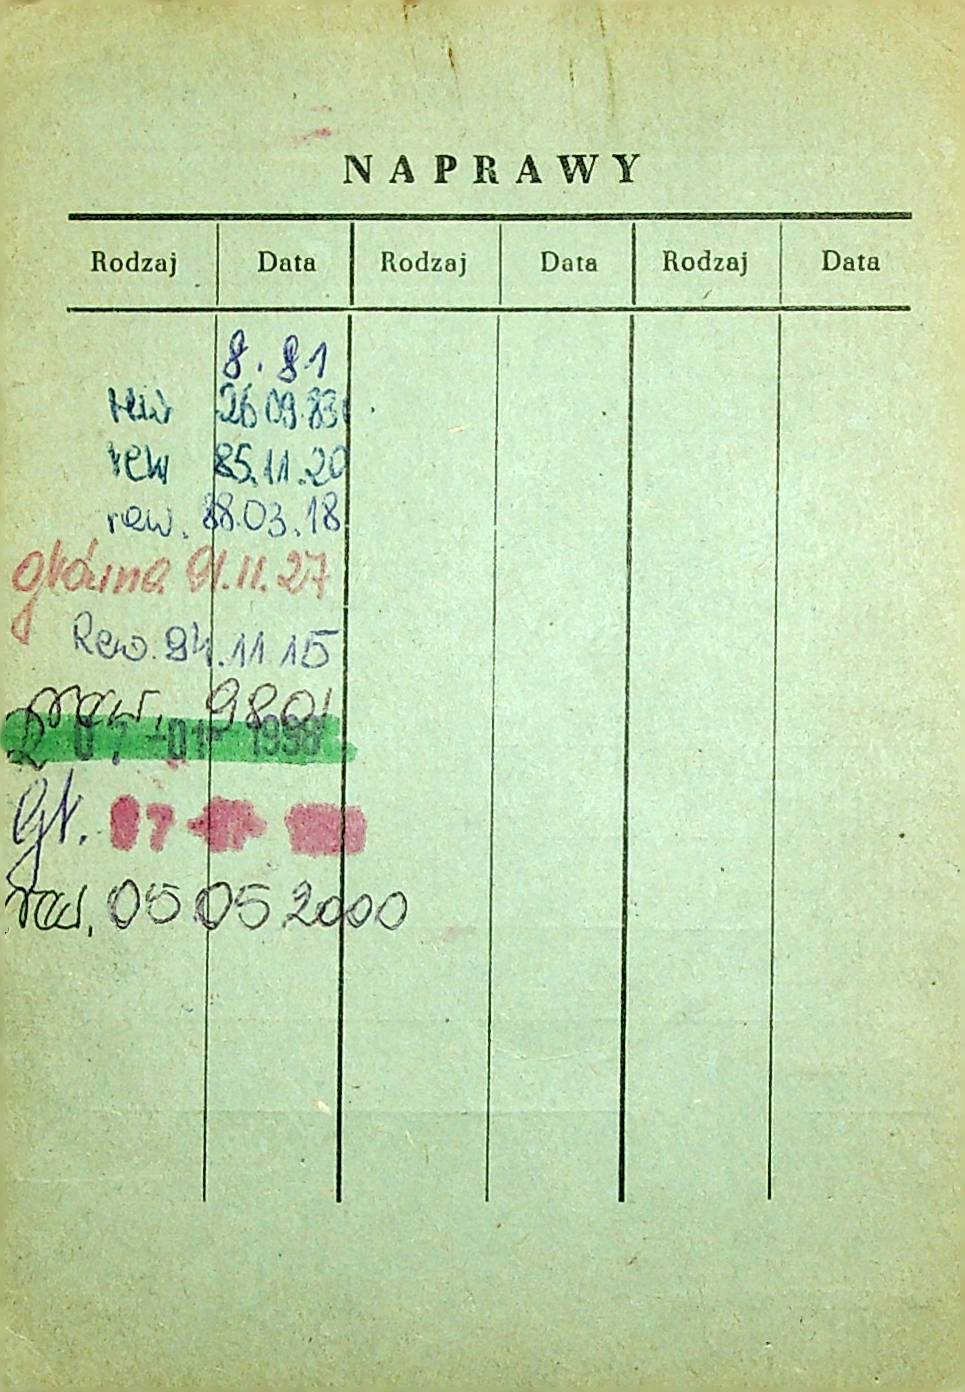 NAPRAWY
Rodzaj Data Rodzaj Data Rodzaj Data
8.81
rew 26 09.83
rew 85.11.20
rew. 88.03.18
główna 91.11.27
Rew. 94.11 15
9801
07 -01- 1998
gł.
rew. 05 05 2000